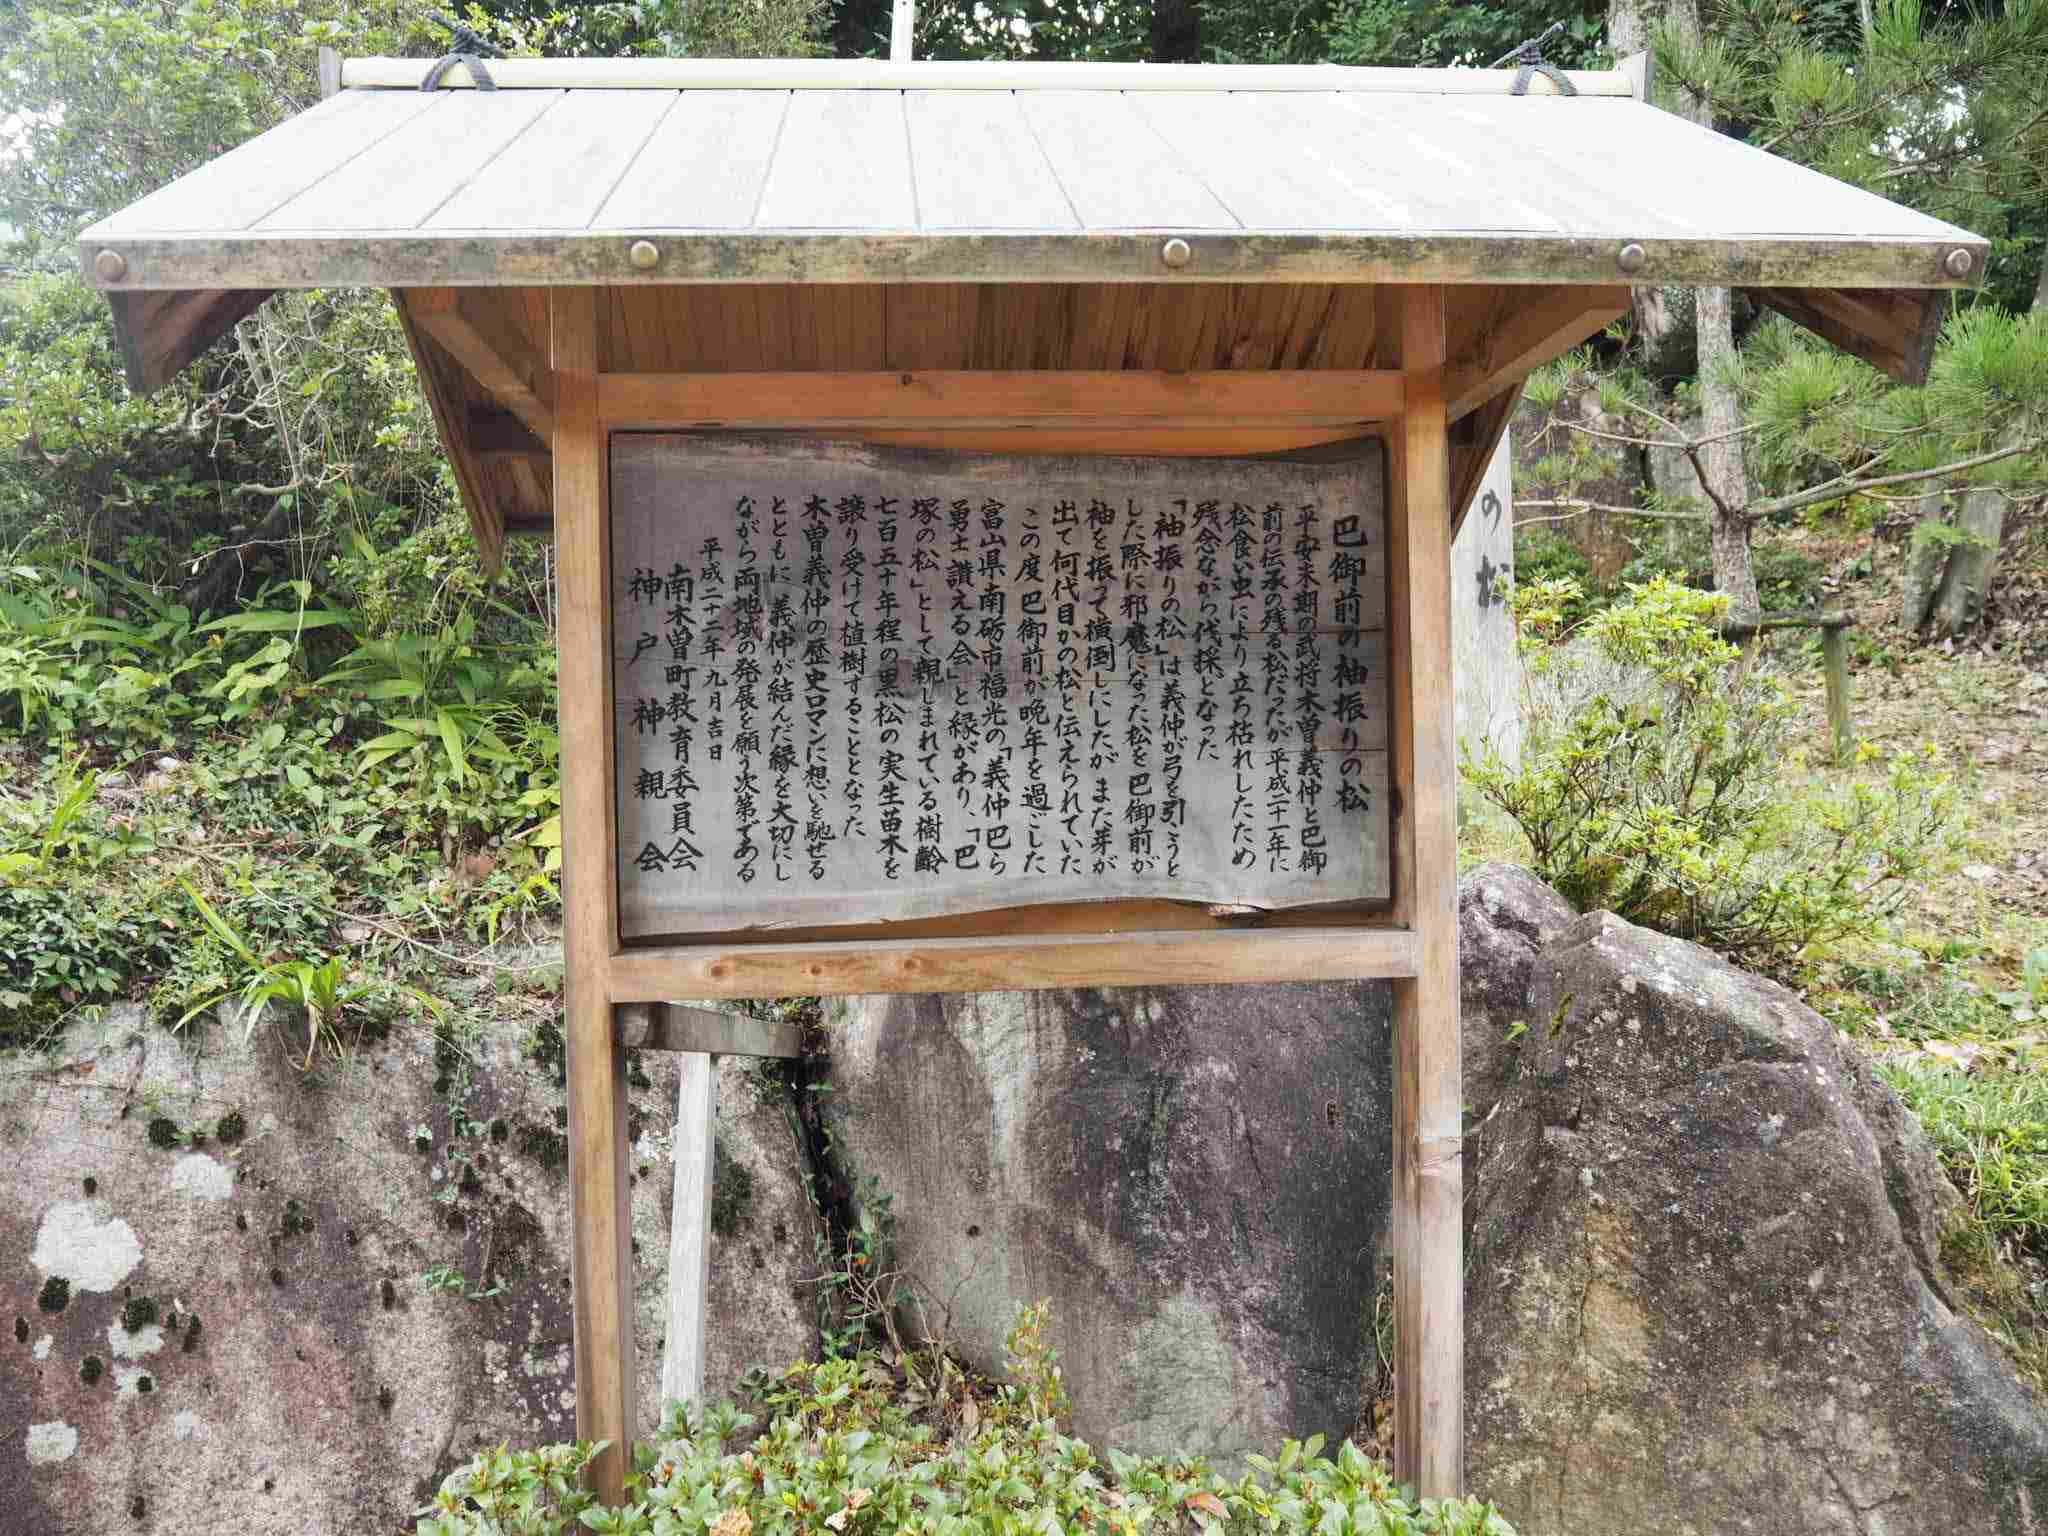 巴御前の袖振りの松
平安末期の武将木曽義仲と巴御
前の伝承の残る松だったが平成二十一年に
松食い虫により立ち枯れしたため
残念ながら伐採となった
「袖振りの松」は義仲が弓を引こうと
した際に邪魔になった松を巴御前が
袖を振って横倒しにしたが また芽が
出て何代目かの松と伝えられていた
この度巴御前が晩年を過ごした
富山県南砺市福光の「義仲巴ら
勇士讃える会」と縁があり、「巴
塚の松」として親しまれている樹齢
七百五十年程の黒松の実生苗木を
譲り受けて植樹することとなった
木曽義仲の歴史ロマンに想いを馳せる
とともに 義仲が結んだ縁を大切にし
ながら両地域の発展を願う次第である
平成二十二年九月吉日
南木曽町教育委員会
神戸神親会
の松